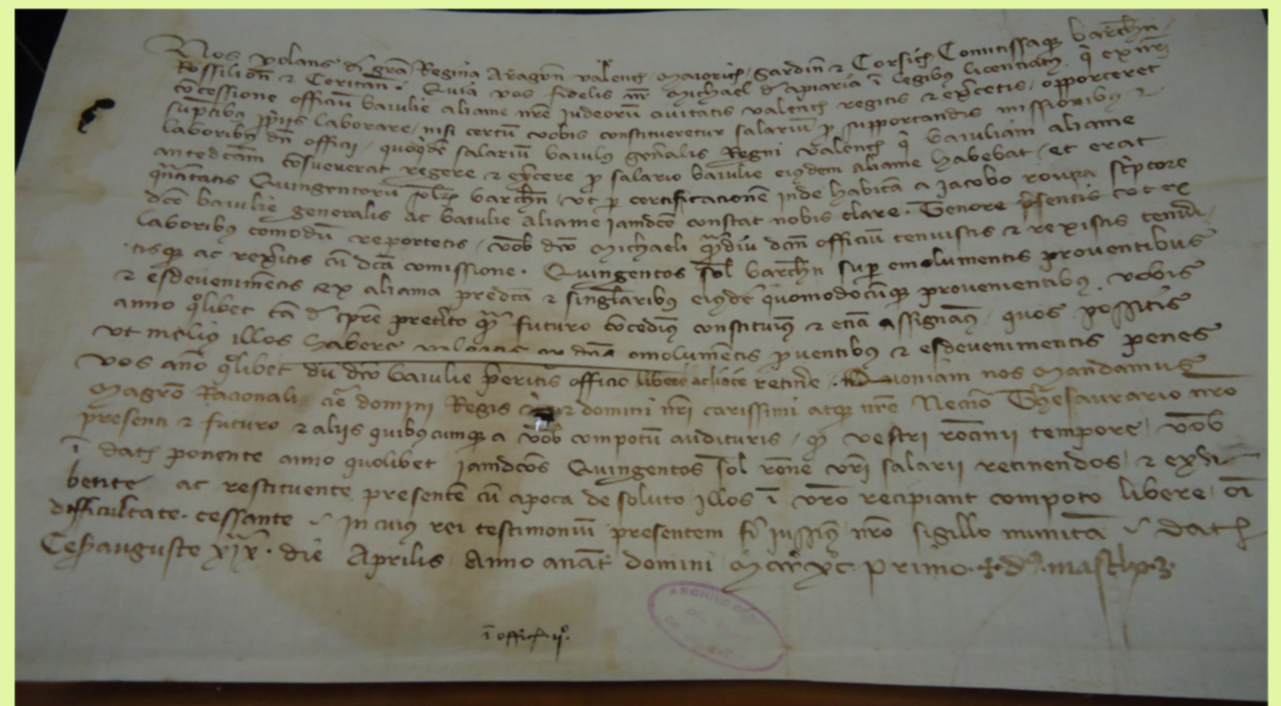 Nos yolans dei gra Regina Aragon Valenc Maioric Sardin & Corsice Comitissaqz barchn
Rossilion & Ceritan. Quia vos fidelis nr Michael d apiaria i legibus licenciatus qi ex nri
cocessione officiu baiulie aliame nre iudeoru civitatis valenc regitis & exercetis, opporteret
suptibz ppriis laborare, nisi certu vobis constitueretur salariu p supportandis missionibz &
laboribz dci officii, quoqde salariu baiulus genalis Regni valenc qi baiuliam aliame
antedcam cosueverat regere & exercere p salario baiulie eiusdem aliame habebat, et erat
qntitatis Quingentoru sol barchn, ut p certificacione inde habita a Jacobo roura scriptore
dce baiulie generalis ac baiulie aliame iamdce constat nobis clare. Tenore psentis ut ex
laboribz comodu reportetis, vob dco Michaeli qmdiu dcm officiu tenuistis & rexistis tenu
tisqz ac rexitis cu dca comissione. Quingentos sol barchn sup emolumentis proventibus
& esdevenimetis ex aliama predca & singlaribz eiusde quomodocuqz provenientibz, vobis
anno qlibet ta d tpre pretito qm futuro cocedimz constituimz & etia assignamz, quos possitis
ut meliz illos habere valeatis ex dcis emolumetis pventibz & esdevenimentis penes
vos anno qlibet du dco baiulie pfueritis officio libere ac licite retine. Quoniam nos mandamus
Magro Racionali cie domini Regis & domini nri carissimi atqz nre Necno Thesaurario nro
presenti & futuro & aliis quibuscumqz a vob compotu audituris, q vestri tempore, vob
i datis ponente anno quolibet iamdcos Quingentos sol rone vri salarii retinendos, & exhi
bente ac restituente presente cu apoca de soluto illos i vro recipiant compoto libere, oi
difficultate cessante. In cuius rei testimoniu presentem fi iussimz nro sigillo munita. Dat
Cesarauguste xix. die Aprilis Anno a nat domini M ccc xc primo.
i offic ii
ARCHIVO DEL